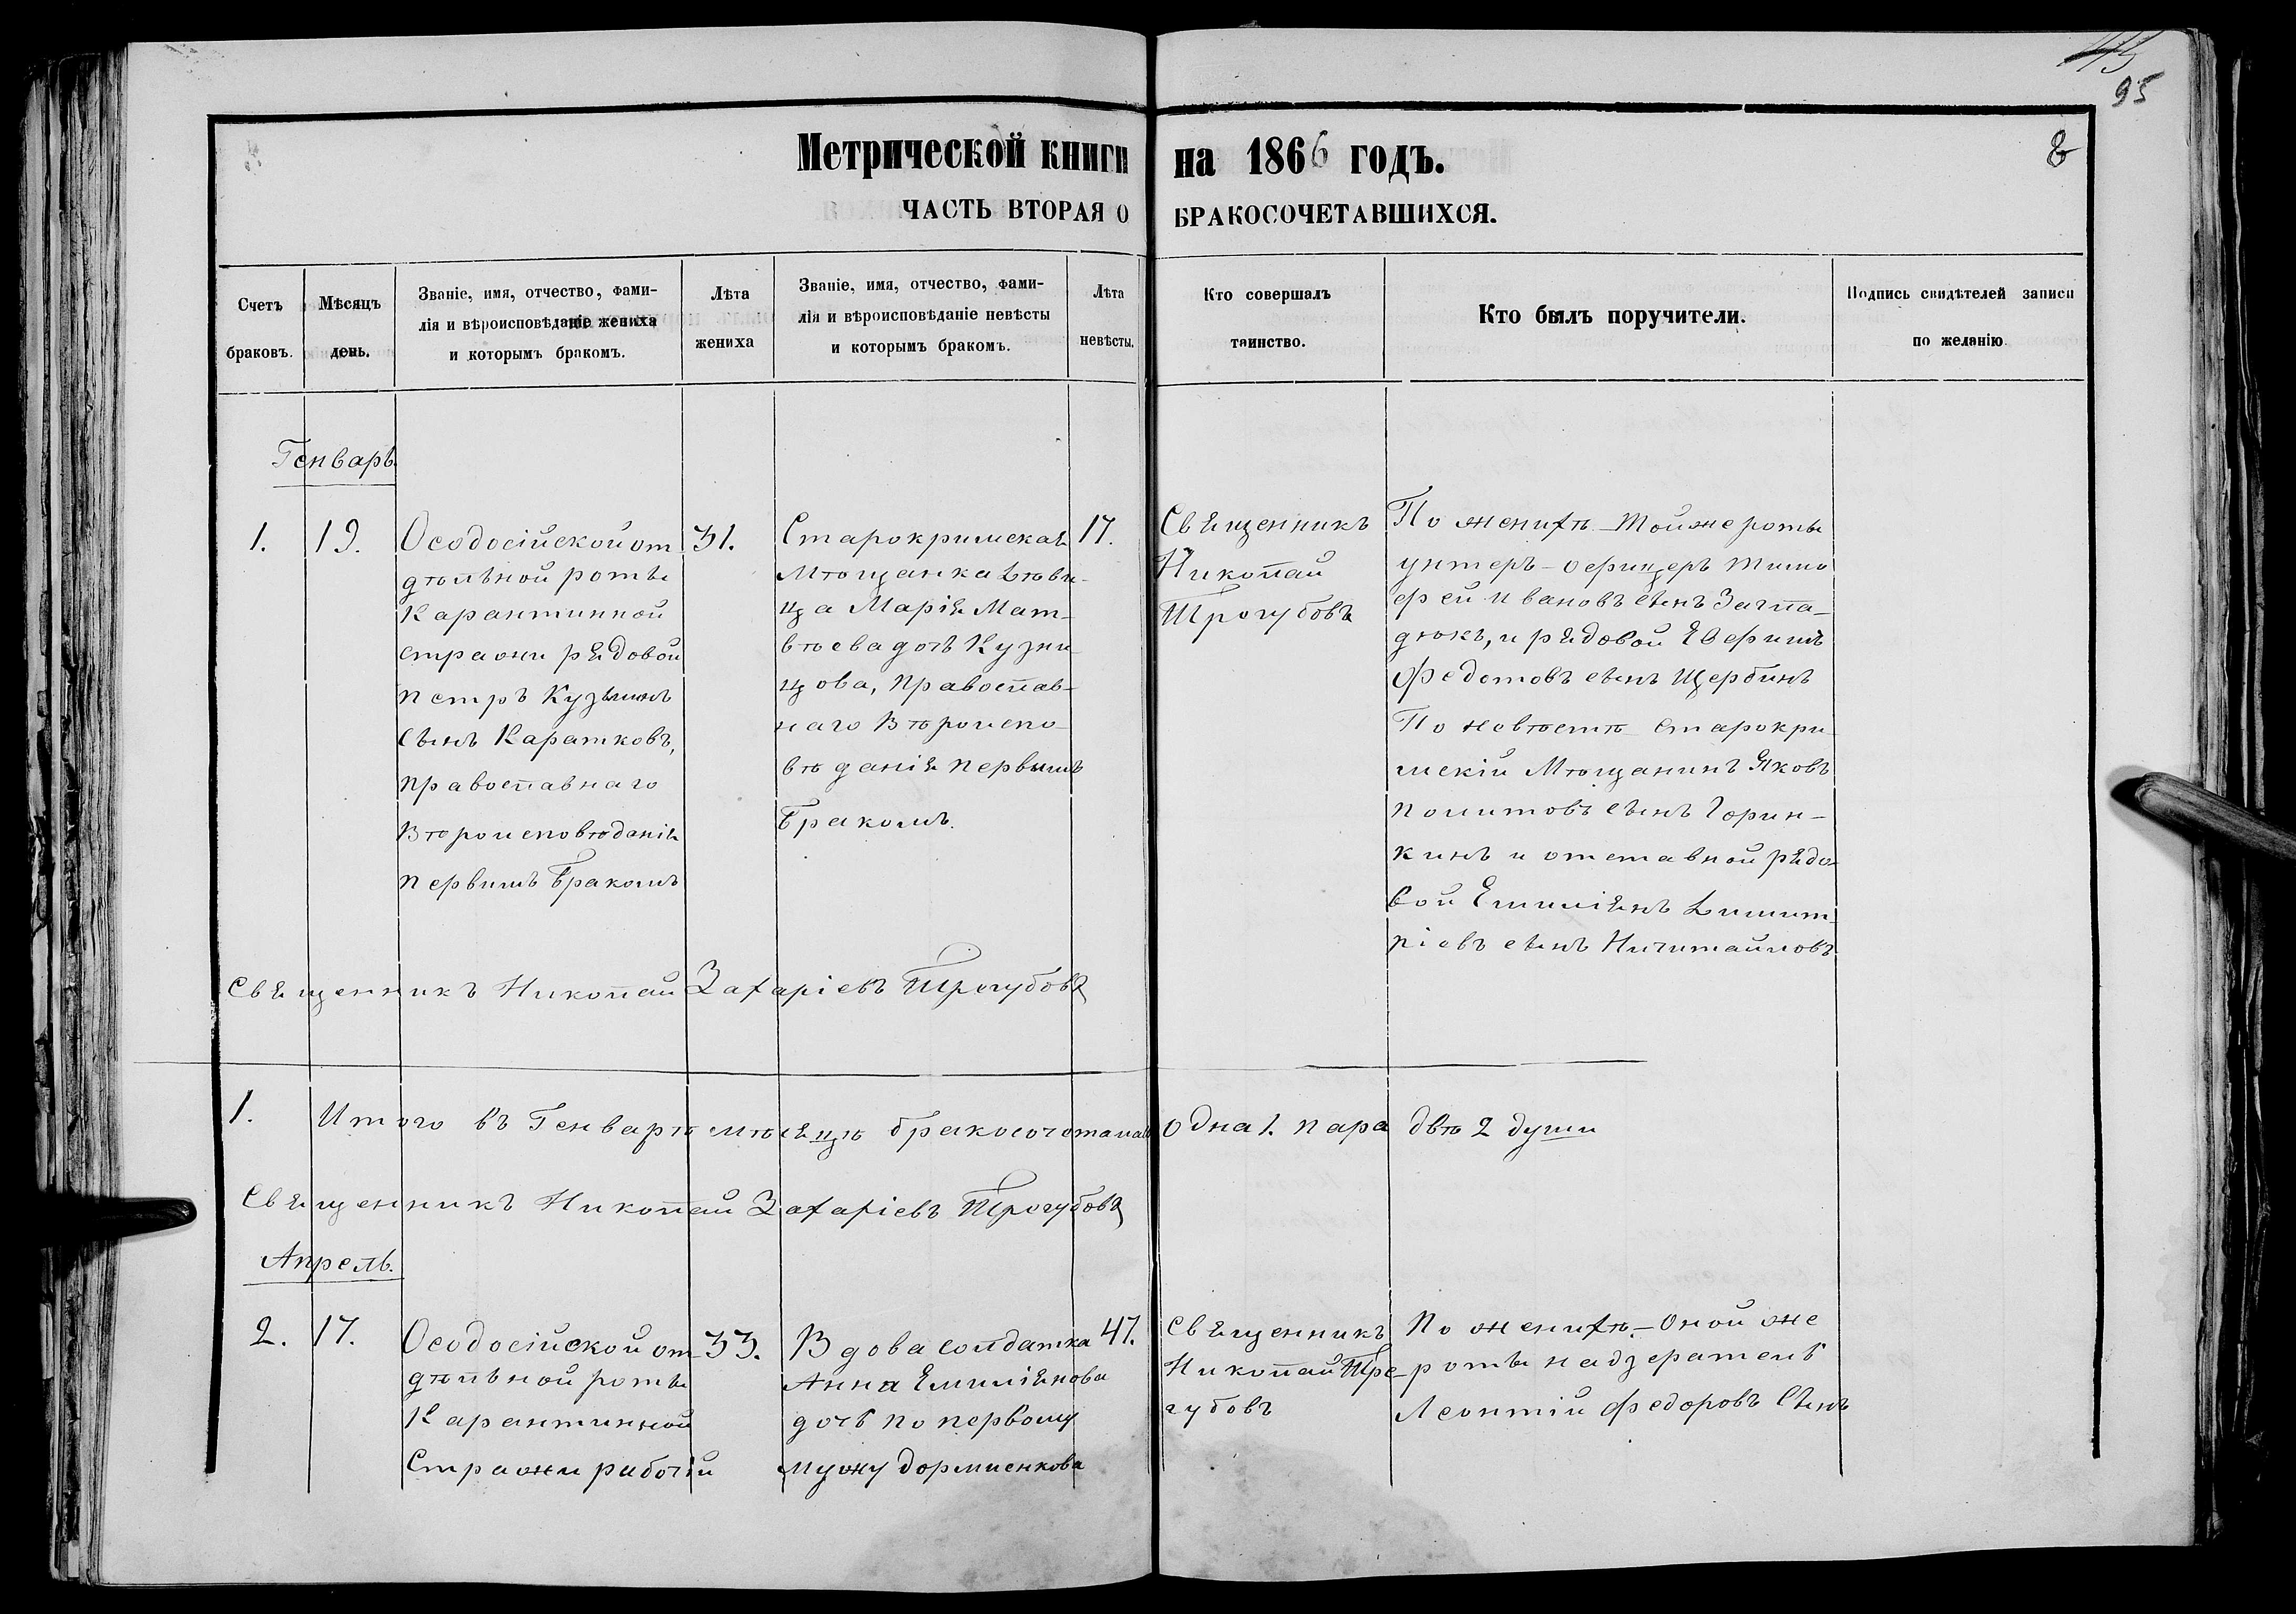 45
95
8
Метрической книги на 1866 годъ.
ЧАСТЬ ВТОРАЯ О БРАКОСОЧЕТАВШИХСЯ.
Счетъ
браковъ.
Мѣсяцъ
день.
Званіе, имя, отчество, фами-
лія и вѣроисповѣданіе жениха
и которымъ бракомъ.
Лѣта
жениха
Званіе, имя, отчество, фами-
лія и вѣроисповѣданіе невѣсты
и которымъ бракомъ.
Лѣта
невѣсты.
Кто совершалъ
таинство.
Кто былъ поручители.
Подпись свидѣтелей записи
по желанію.
Генварь
1.
19.
Ѳеодосійской от
дѣльной роты
Карантинной
стражи рядовой
Петръ Кузьминъ
сынъ Каратковъ,
православнаго
Вѣроисповѣданія
первимъ бракомъ
31.
Старокримская
Мѣщанка Дѣви-
ца Марія Мат-
вѣева дочь Кузни-
цова, Православ-
наго Вѣроиспо-
вѣданія первымъ
бракомъ.
17.
Священникъ
Николай
Трегубовъ
По женихѣ – тойже роты
унтеръ-офицеръ Тимо
фей Ивановъ сынъ
и рядовой Ефимъ
Федотовъ сынъ Щербинъ
По невѣстѣ старокри
мскій Мѣщанинъ Яковъ
сынъ Горин-
кинъ и отставной рядо-
вой Емиліянъ Димит-
ріевъ сынъ
Священникъ Николай Захаріевъ Трегубовъ
1. Итого въ Генварѣ мѣсяцѣ бракосочеталась одна 1. пара двѣ 2 души
Священникъ Николай Захаріевъ Трегубовъ
Апрель.
2.
17.
Ѳеодосійской от
дѣльной роты
Карантинной
Стражи рабочій
33.
Вдова солдатка
Анна Емиліянова
дочь по первому
мужу Дормиенкова
47.
Священникъ
Николай Тре-
губовъ
По женихѣ. – Оной же
роты надзератель
Леонтій Федоровъ Сынъ